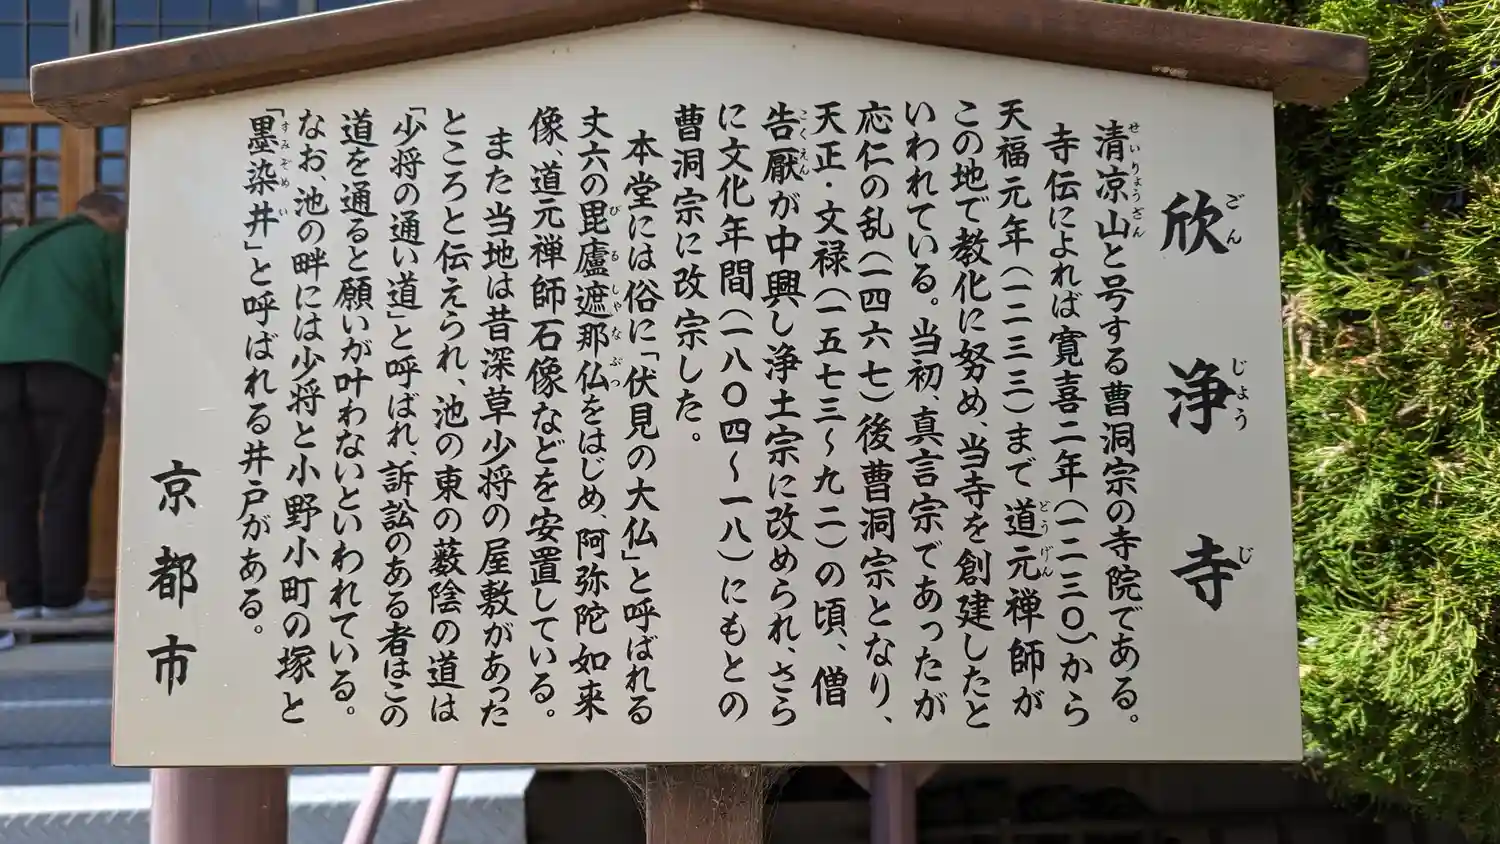 欣浄寺
ごんじょうじ
清凉山と号する曹洞宗の寺院である。
せいりょうざん
寺伝によれば寛喜二年(一二三〇)から
天福元年(一二三三)まで道元禅師が
どうげん
この地で教化に努め、当寺を創建したと
いわれている。当初、真言宗であったが
応仁の乱(一四六七)後曹洞宗となり、
天正・文禄(一五七三〜九二)の頃、僧
告厭が中興し浄土宗に改められ、さら
こくえん
に文化年間(一八〇四〜一八)にもとの
曹洞宗に改宗した。
本堂には俗に「伏見の大仏」と呼ばれる
丈六の毘盧遮那仏をはじめ、阿弥陀如来
びるしゃなぶつ
像、道元禅師石像などを安置している。
また当地は昔深草少将の屋敷があった
ところと伝えられ、池の東の薮陰の道は
「少将の通い道」と呼ばれ、訴訟のある者はこの
道を通ると願いが叶わないといわれている。
なお、池の畔には少将と小野小町の塚と
「墨染井」と呼ばれる井戸がある。
すみぞめい
京都市